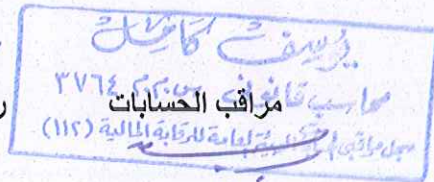 يوسف كامل
محاسب قانونى س.م.م ٣٧٦٤
مراقب الحسابات
سجل مراقبى الهيئة العامة للرقابة المالية (١١٢)